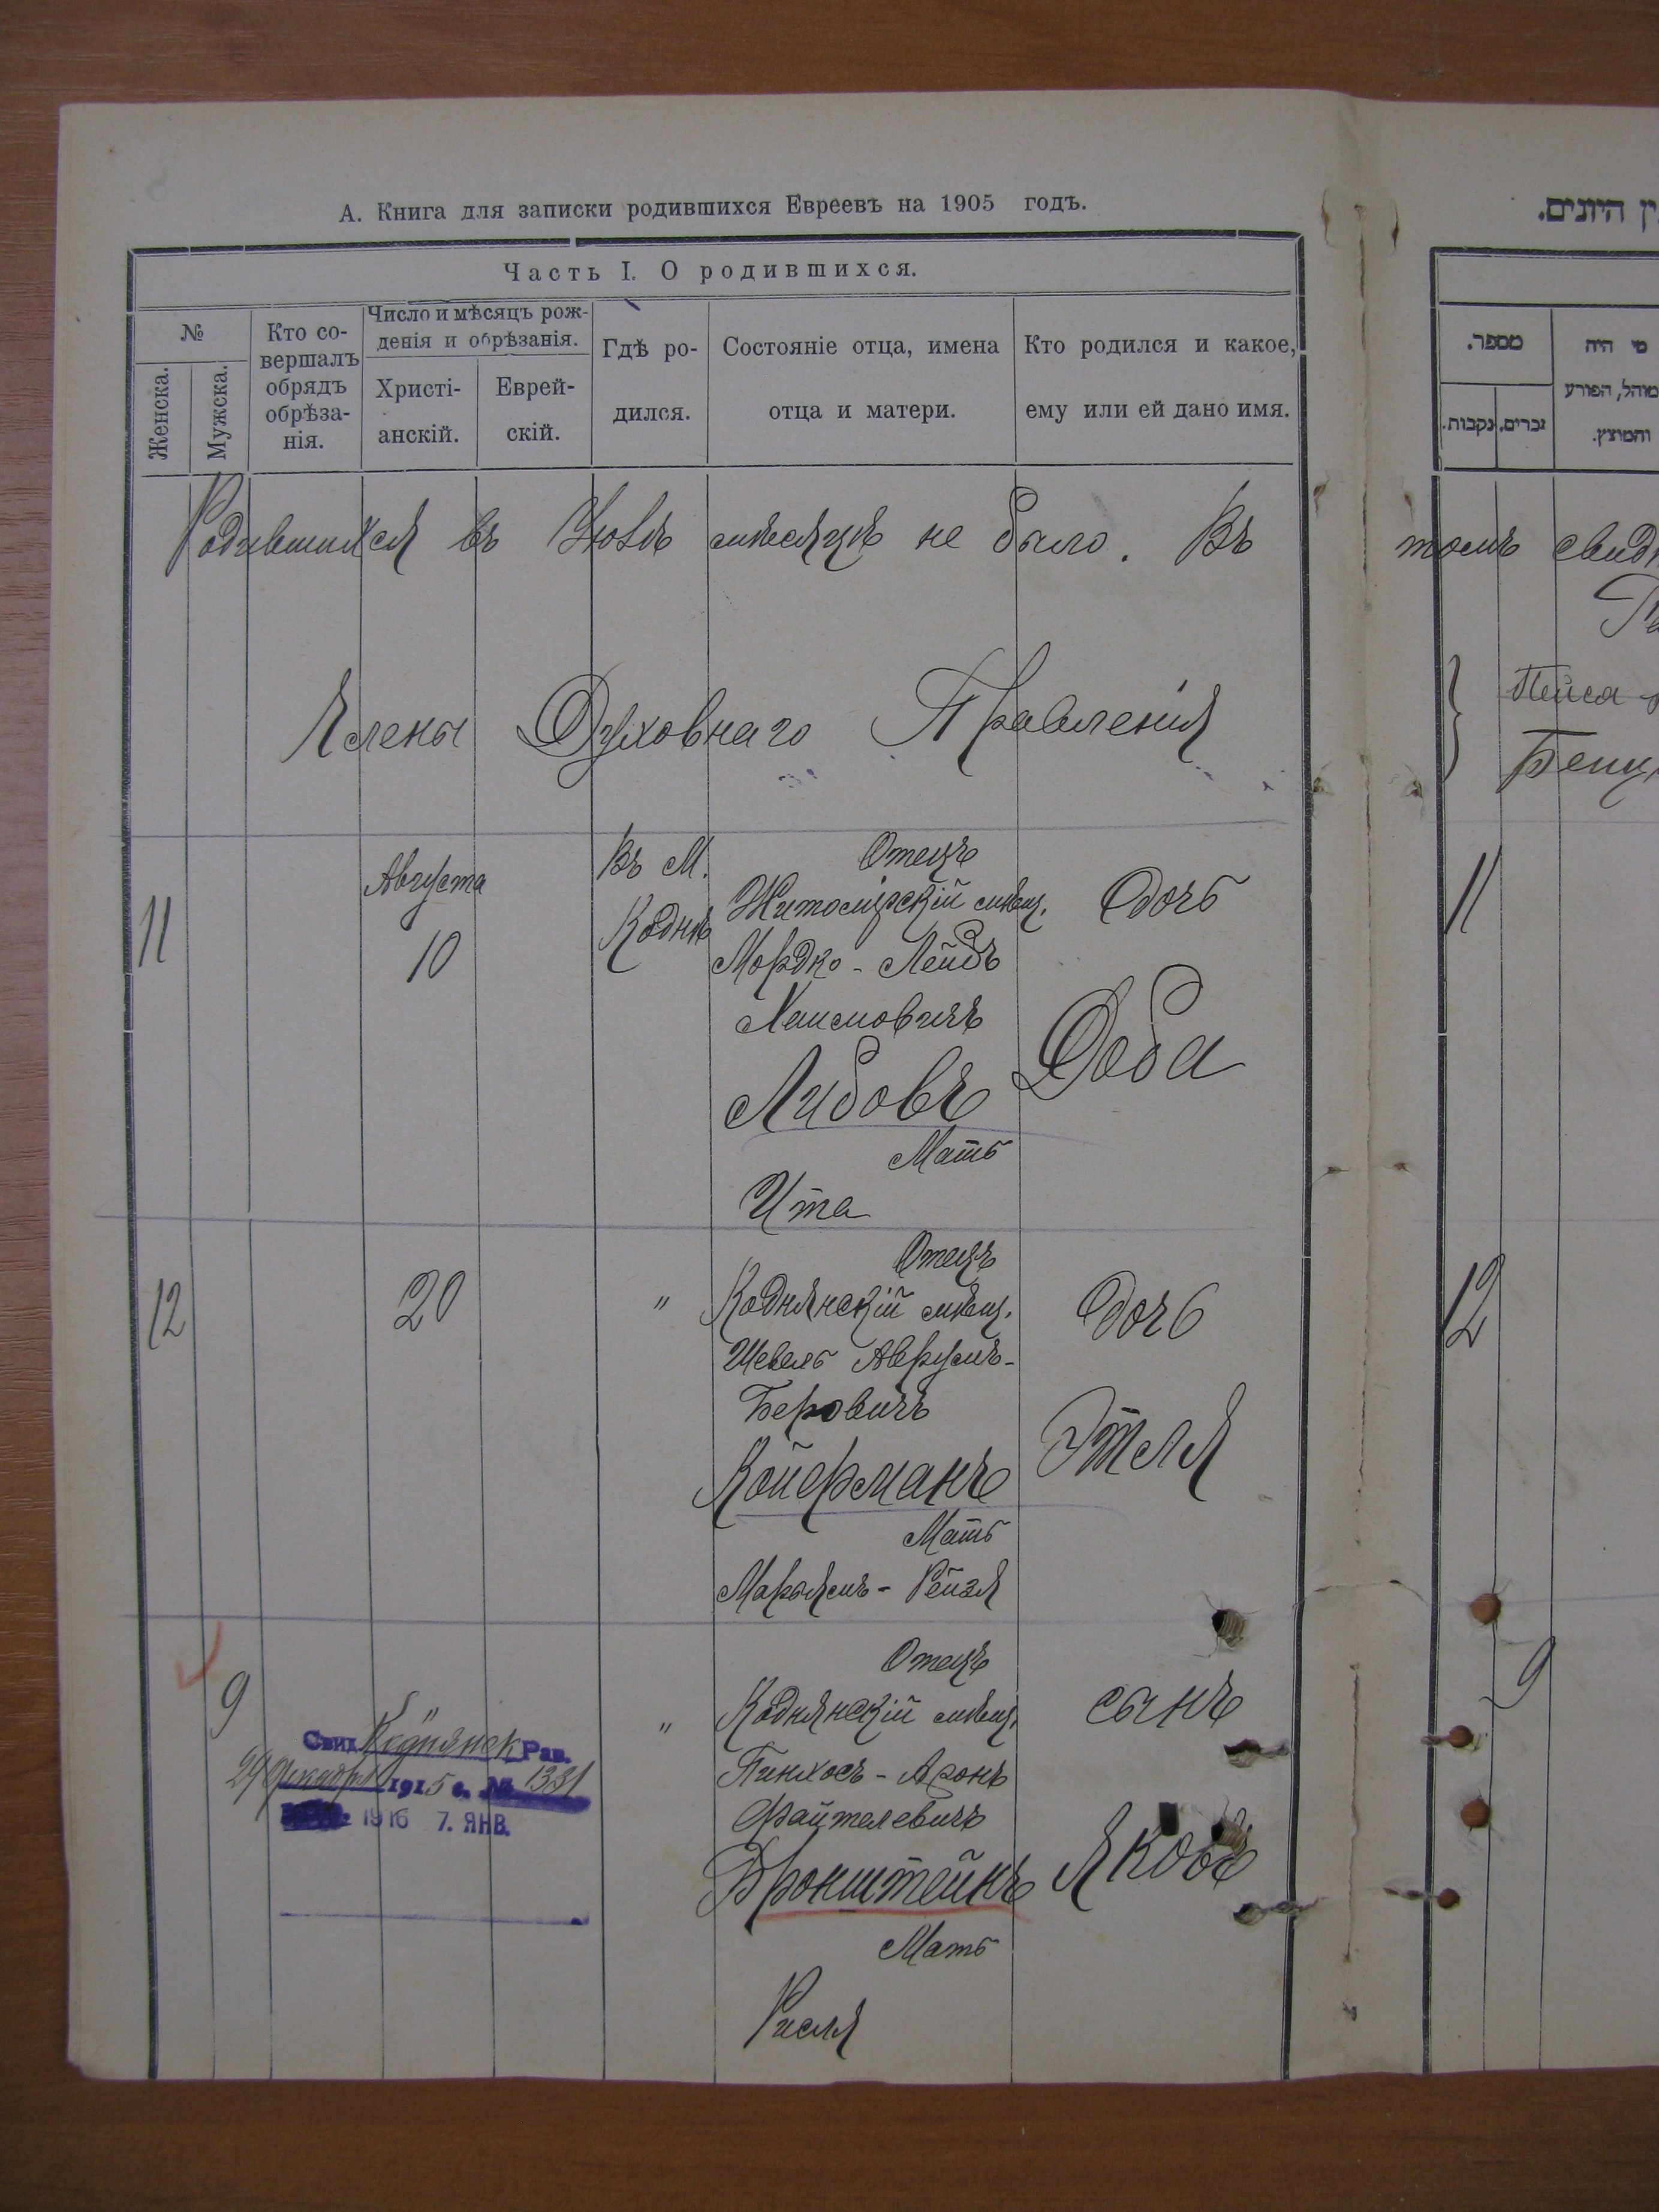 А. Книга для записки родившихся Евреевъ на 1905 годъ.
Часть I. О родившихся.
№
Женска.
Мужска.
Кто со-
вершалъ
обрядъ
обрѣза-
нія.
Число и мѣсяцъ рож-
денія и обрѣзанія.
Христі-
анскій.
Еврей-
скій.
Гдѣ ро-
дился.
Состояніе отца, имена
отца и матери.
Кто родился и какое,
ему или ей дано имя.
Родившихся въ Іюлѣ мѣсяцѣ не было. Въ
Члены Духовнаго Правленія
11
Августа
10
Въ М.
Коднѣ
Отецъ
Житомірскій мѣщ.
Мордко-Лейбъ
Хаимовичъ
Либовъ
Мать
Ита
Дочь
Доба
12
20
"
Отецъ
Коднянскій мѣщ.
Шевель Аврумъ-
Беровичъ
Койферманъ
Мать
Марьямъ-Рейзя
Дочь
Этля
9
Свид. Коднянск Рав.
29 Декабря 1915 г. № 1331
1916 7. ЯНВ.
"
Отецъ
Коднянскій мѣщ.
Пинхосъ-Аронъ
Файтелевичъ
Бронштейнъ
Мать
Рисля
сынъ
Яковъ
ין היונים.
מספר.
נקבות.
זכרים,
מי היה
מוהל, הפורע
והמוצץ.
томъ
Пейса
11
12
9